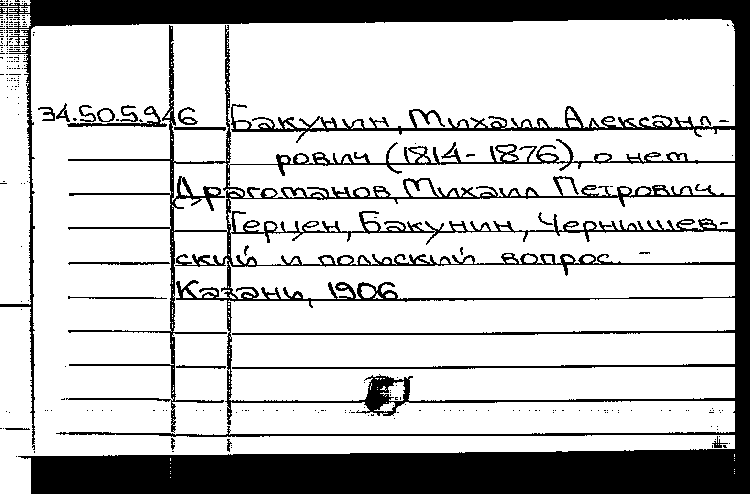 34.50.5.946 Бакунин, Михаил Александ,-
рович (1814-1876), о нем.
Драгоманов, Михаил Петрович.
Герцен, Бакунин, Чернышев-
ский и польский вопрос. -
Казань, 1906